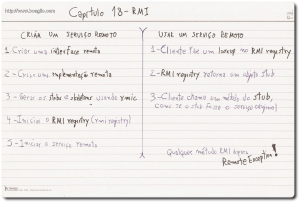 Capítulo 18 - RMI
CRIAR UM SERVIÇO REMOTO
1 - Criar uma interface remota
2 - Criar uma implementação remota
3 - Gerar os stubs e skeletons usando rmic
4 - Iniciar o RMI registry (rmiregistry)
5 - Iniciar o serviço remoto
USAR UM SERVIÇO REMOTO
1 - Cliente faz um lookup no RMI registry
2 - RMI registry retorna um objeto stub
3 - Cliente chama um método do stub,
como se o stub fosse o serviço original
Qualquer método RMI dispara
RemoteException!